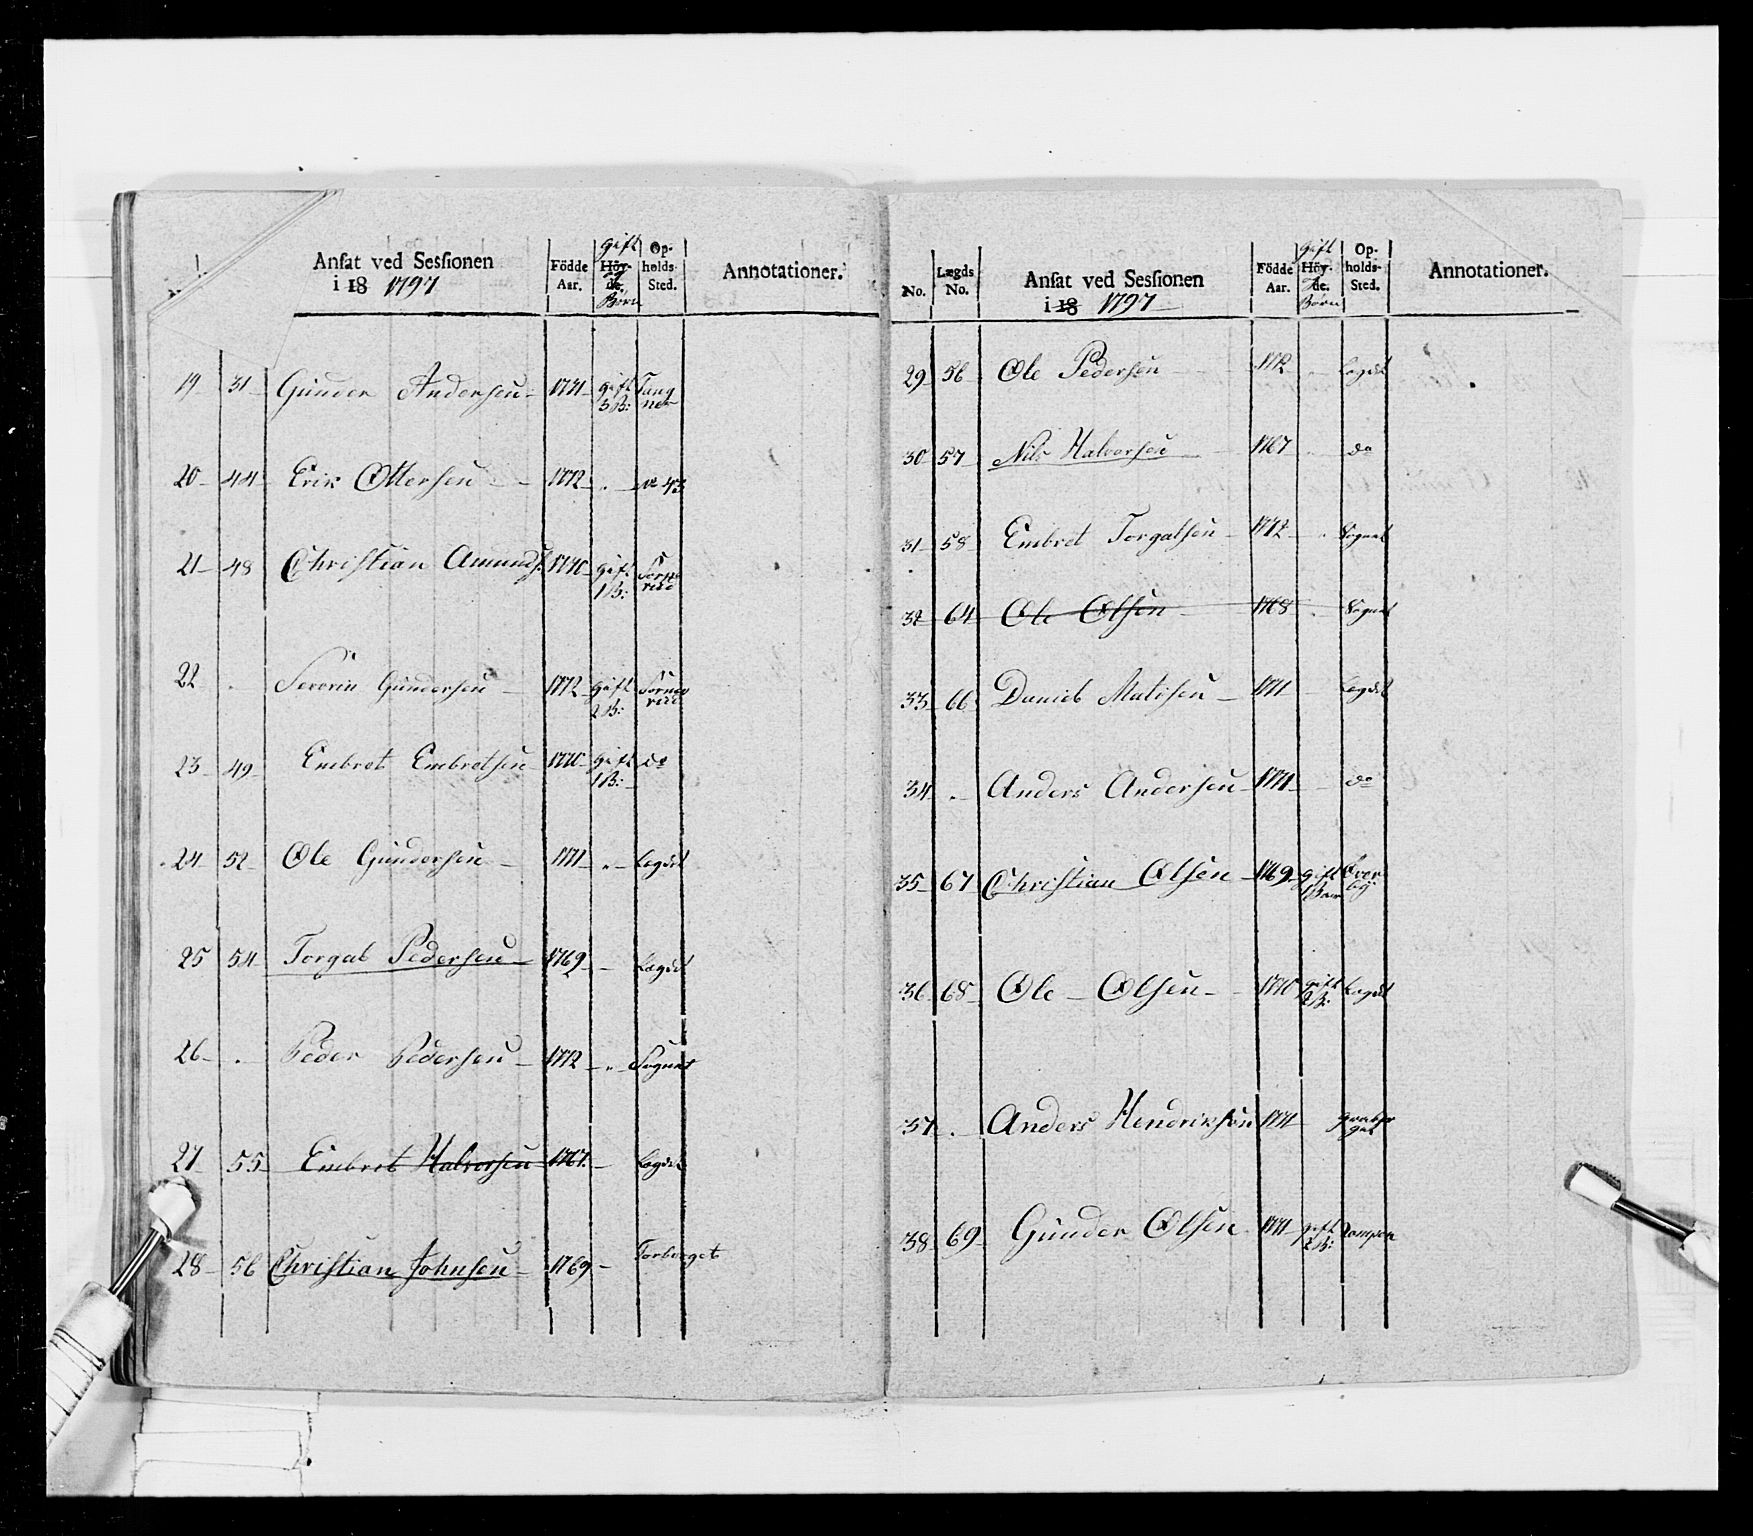 Ansat ved Sessionen i 18 1797 Födde Aar. gift Höy- de. Börn Op- holds- Sted. Annotationer.
19 31 Gunder Andersen 1731 gift 3 B: Tang nes
20 44 Erik Ottersen 1772 " No 43
21 48 Christian Amunds: 1770 gift 1 B:
22 " Severin Gundersen 1772 gift 2 B:
23 49 Embret Embretsen 1770 gift 1 B: do
24 52 Ole Gundersen 1771 " Lægdet
25 54 Torgal Pedersen 1769 Lægdet
26 " Peder Pedersen 1772 " Sognet
27 55 Embret Halvorsen 1767 Lægdet
28 56 Christian Johnsen 1769 Torberget
No. Lægds No. Ansat ved Sessionen i 18 1797 Födde Aar. gift Höy- de. Börn Op- holds- Sted. Annotationer.
29 56 Ole Pedersen 1772 Lægdet
30 57 Nils Halvorsen 1767 do
31 58 Embret Torgalsen 1772 " Sognet
32 64 Ole Olsen 1768 Sognet
33 66 Daniel Matisen 1771 Lægdet
34 " Anders Andersen 1771 do
35 67 Christian Olsen 1769 gift 1 Barn Över by
36 68 Ole Olsen 1770 gift 2 B: Lægdet
37 " Anders Hendriksen 1771
38 69 Gunder Olsen 1771 gift 2 B: